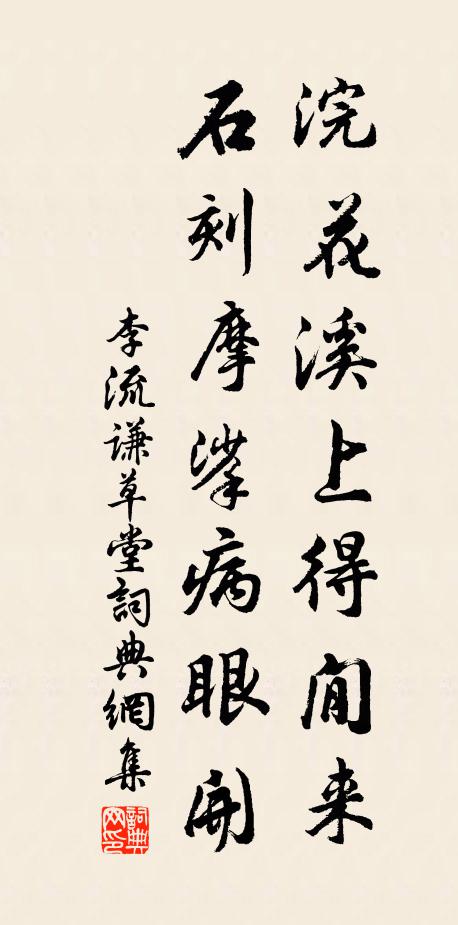 浣花溪上得閒来
石刻摩挲病眼開
李流谦草堂詞典網集
詞典網印